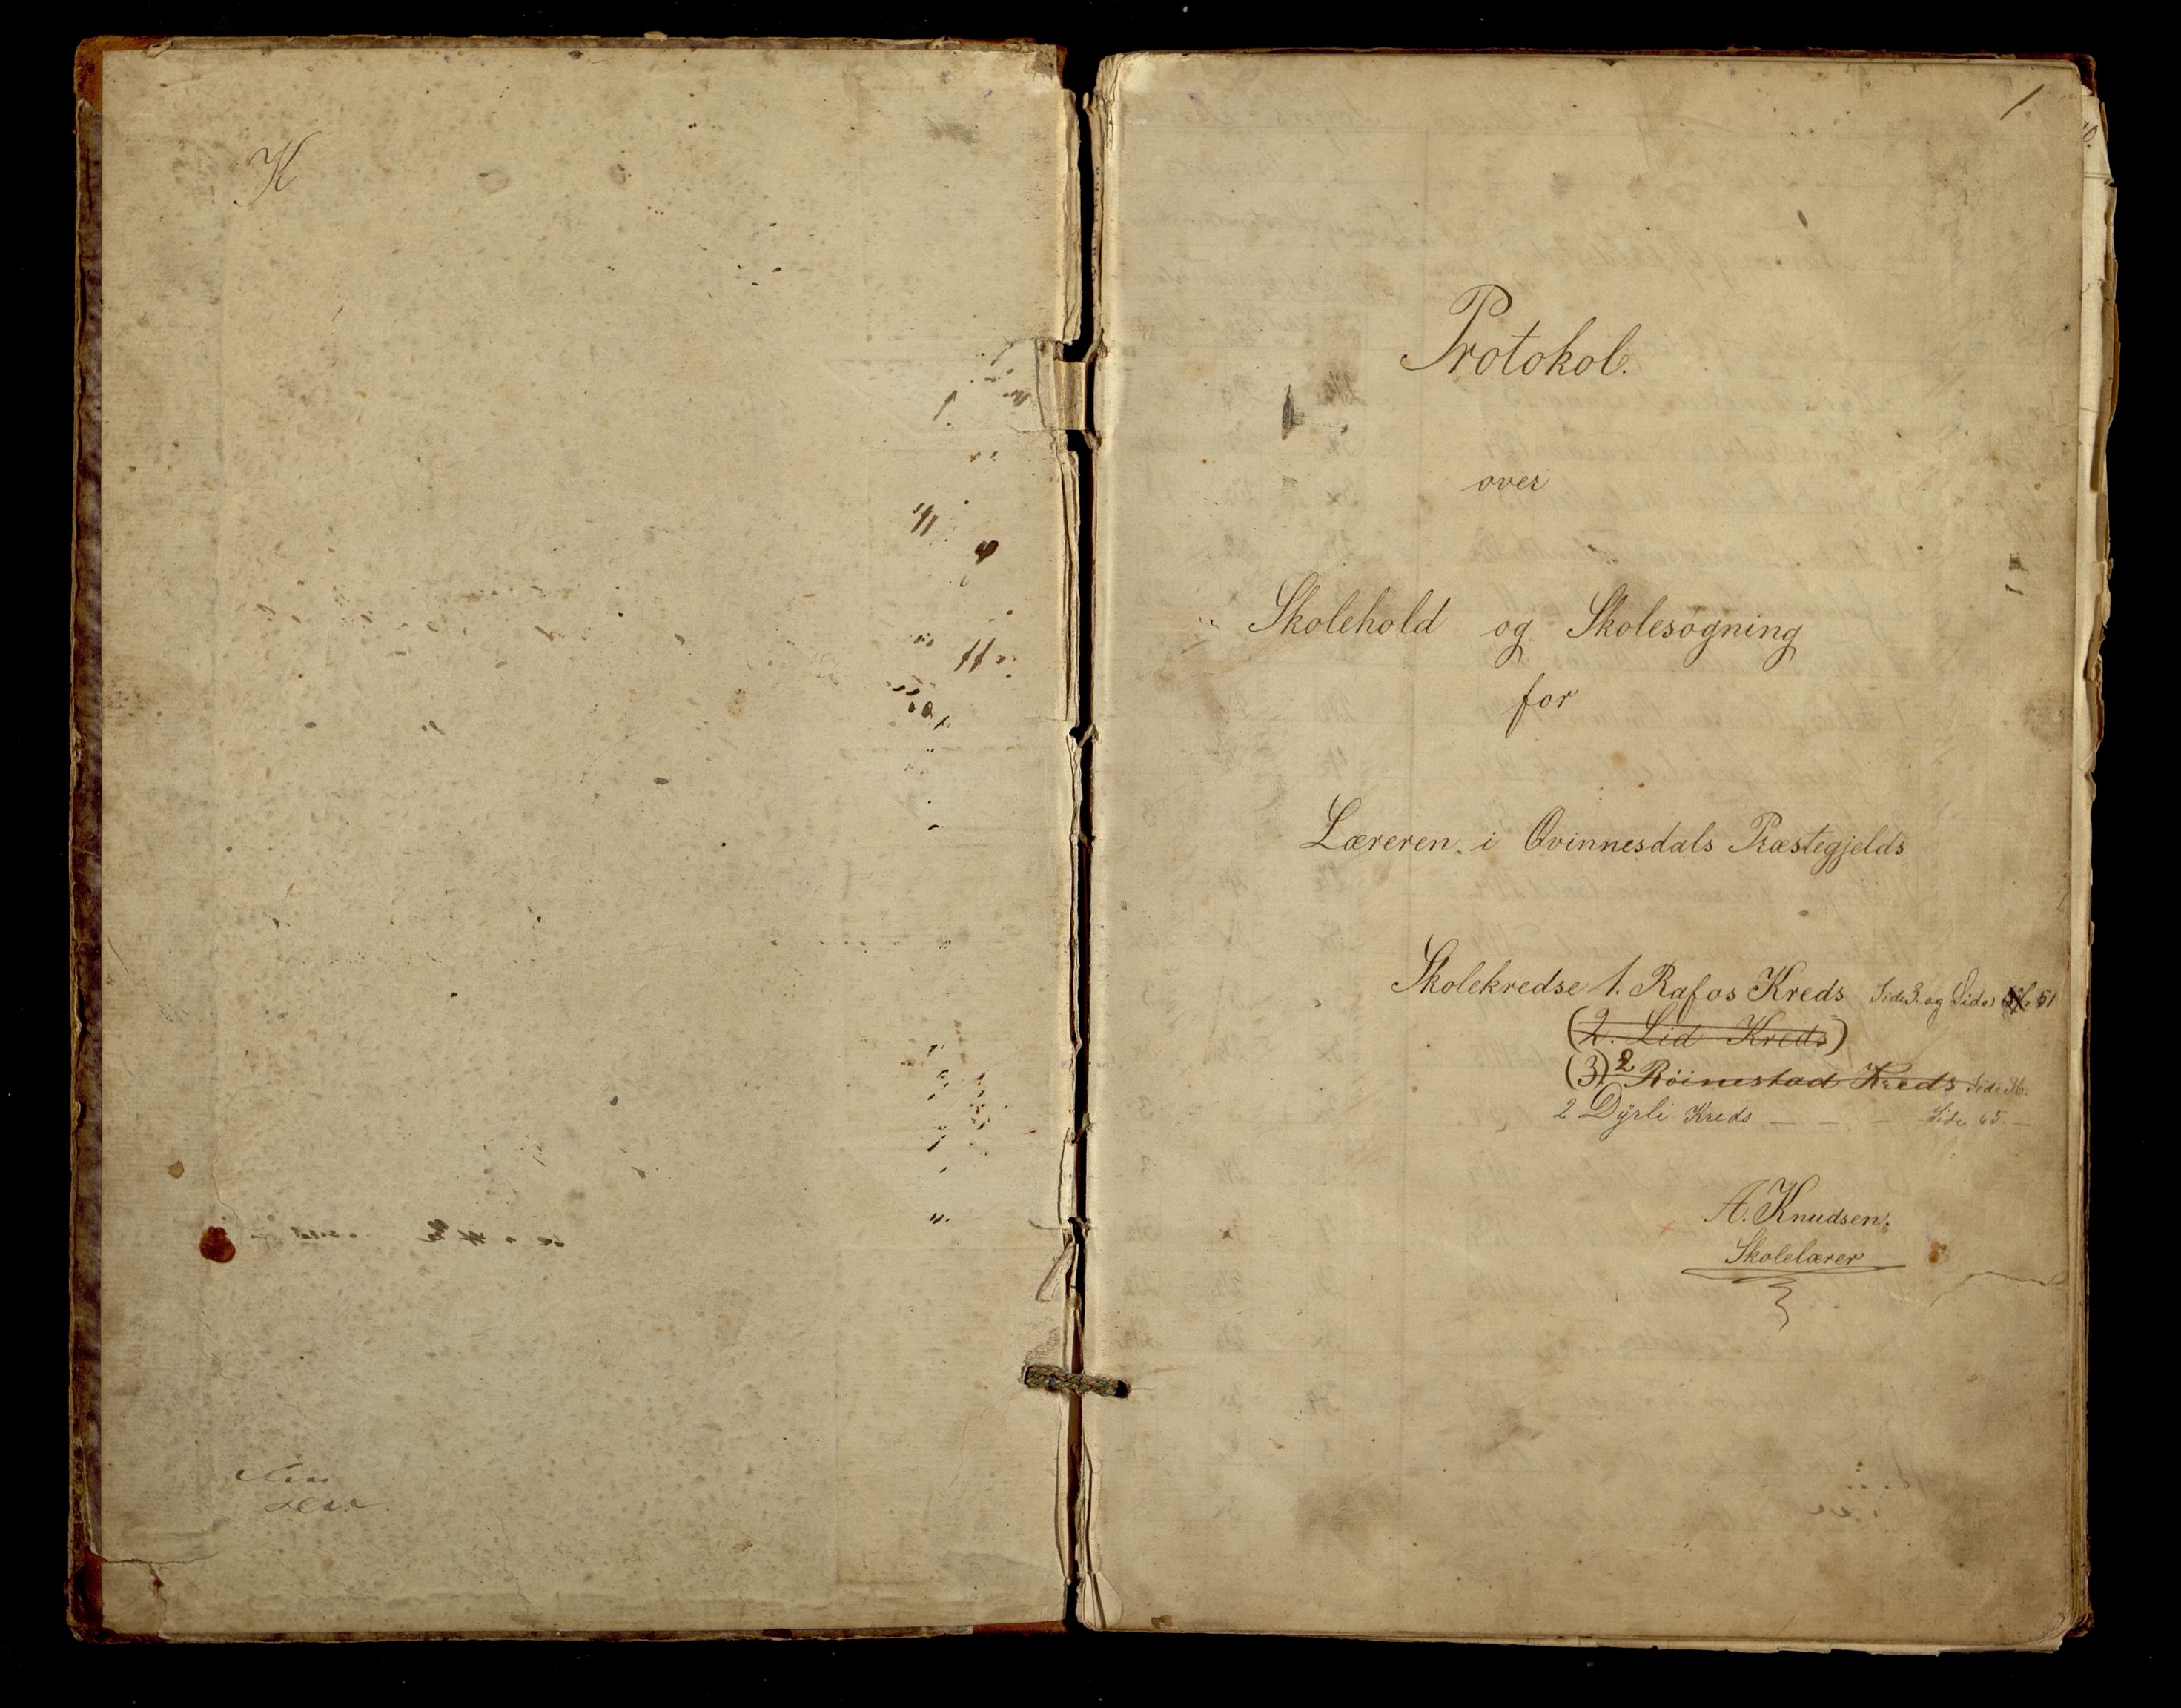 K
1
Protokol.
over
Skolehold og Skolesøgning
for
Læreren i Qvinnesdals Præstegjelds
Skolekredse 1. Rafos Kreds Side 3. og Side 51
(2. Lid Kreds)
(3) 2 Röinestad Kreds Side 36.
2 Dÿrli Kreds — — — Side 65. —
A. Knudsen.
Skolelærer